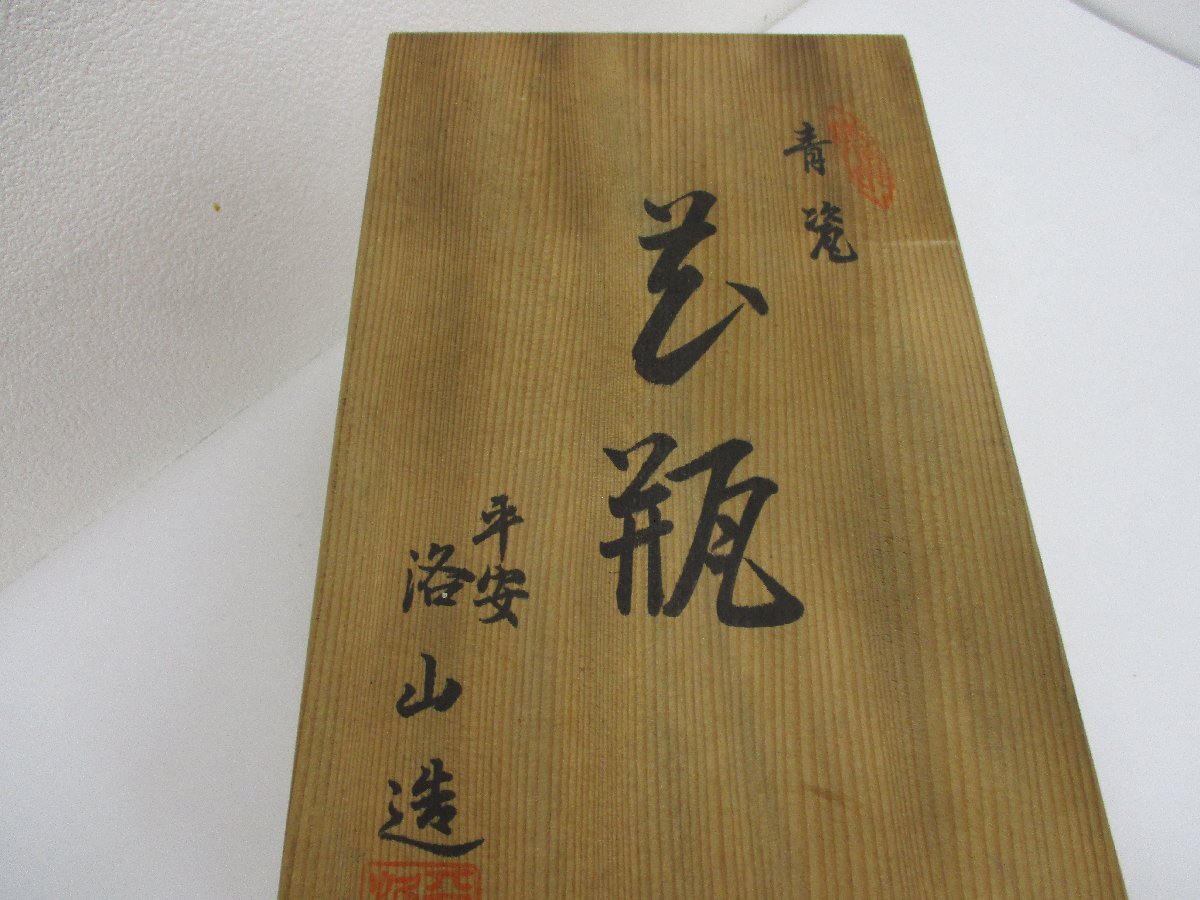 青瓷
花瓶
平安
洛山造